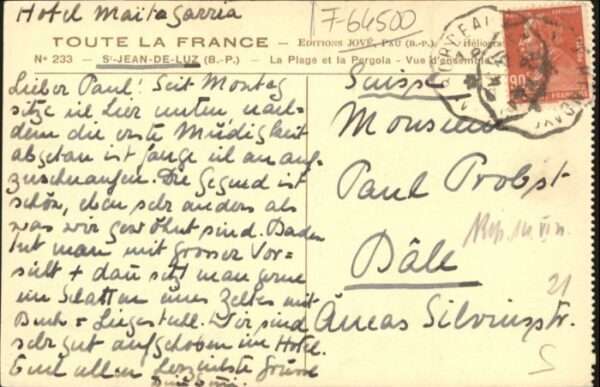 Hotel Maïtagarria
F-64500
TOUTE LA FRANCE — EDITIONS JOVÉ, PAU (B.-P.) — Héliog
N° 233 — St-JEAN-DE-LUZ (B.-P.) — La Plage et la Pergola - Vue d'ensemble
Lieber Paul! Seit Montag
sitze ich hier unten, nach=
dem die erste Müdigkeit
abgetan ist fange ich an auf-
zuschnaufen. Die Gegend ist
schön, eben sehr anders als
was wir gewöhnt sind. Baden
tut man mit grosser Vor=
sicht + dann sitzt man gerne
im Schatten eines Zeltes mit
Buch + Liegestuhl. Wir sind
sehr gut aufgehoben im Hotel.
Euch allen herzlichste Grüsse
Suisse
Monsieur
Paul Probst
Bâle
Äneas Silviusstr.
21
S
90